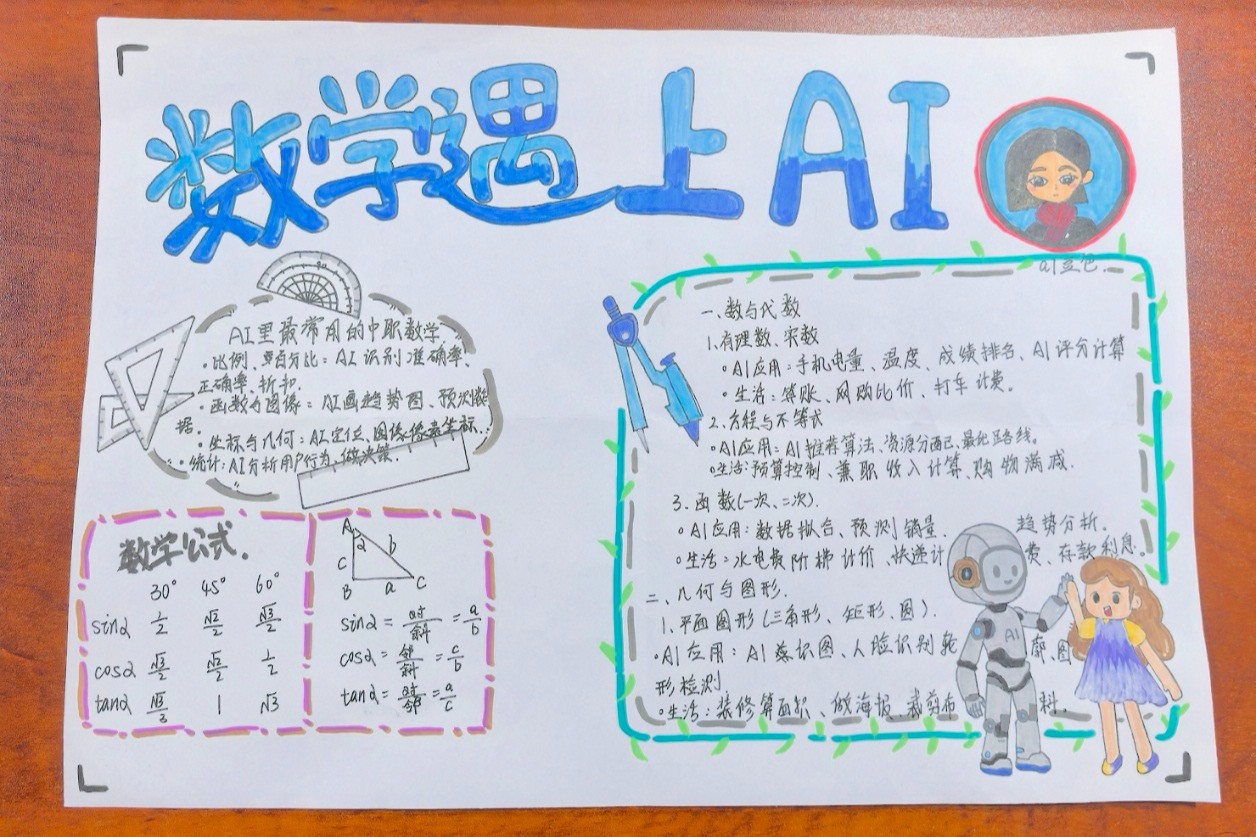 数学遇上AI
ai豆包.
AI里最常用的中职数学
·比例、百分比：AI识别准确率、
正确率、折扣.
·函数与图像：AI画趋势图、预测数
据.
·坐标与几何：AI定位、图像像素坐标.
·统计：AI分析用户行为、做决策.
数学公式.
30° 45° 60°
sinα 1/2 √2/2 √3/2
cosα √3/2 √2/2 1/2
tanα √3/3 1 √3
A
α
c b
B a C
sinα = 对/斜 = a/b
cosα = 邻/斜 = c/b
tanα = 对/邻 = a/c
一、数与代数
1.有理数、实数
·AI应用：手机电量、温度、成绩排名、AI评分计算
·生活：算账、网购比价、打车计费。
2.方程与不等式
·AI应用：AI推荐算法、资源分配、最优路线。
·生活：预算控制、兼职收入计算、购物满减.
3.函数(一次、二次).
·AI应用：数据拟合、预测销量. 趋势分析.
·生活：水电费阶梯计价、快递计 费、存款利息.
二、几何与图形.
1.平面图形(三角形、矩形、圆).
·AI应用：AI 识图、人脸识别轮 廓、图
形检测
·生活：装修算面积、做海报、裁剪布 料.
AI